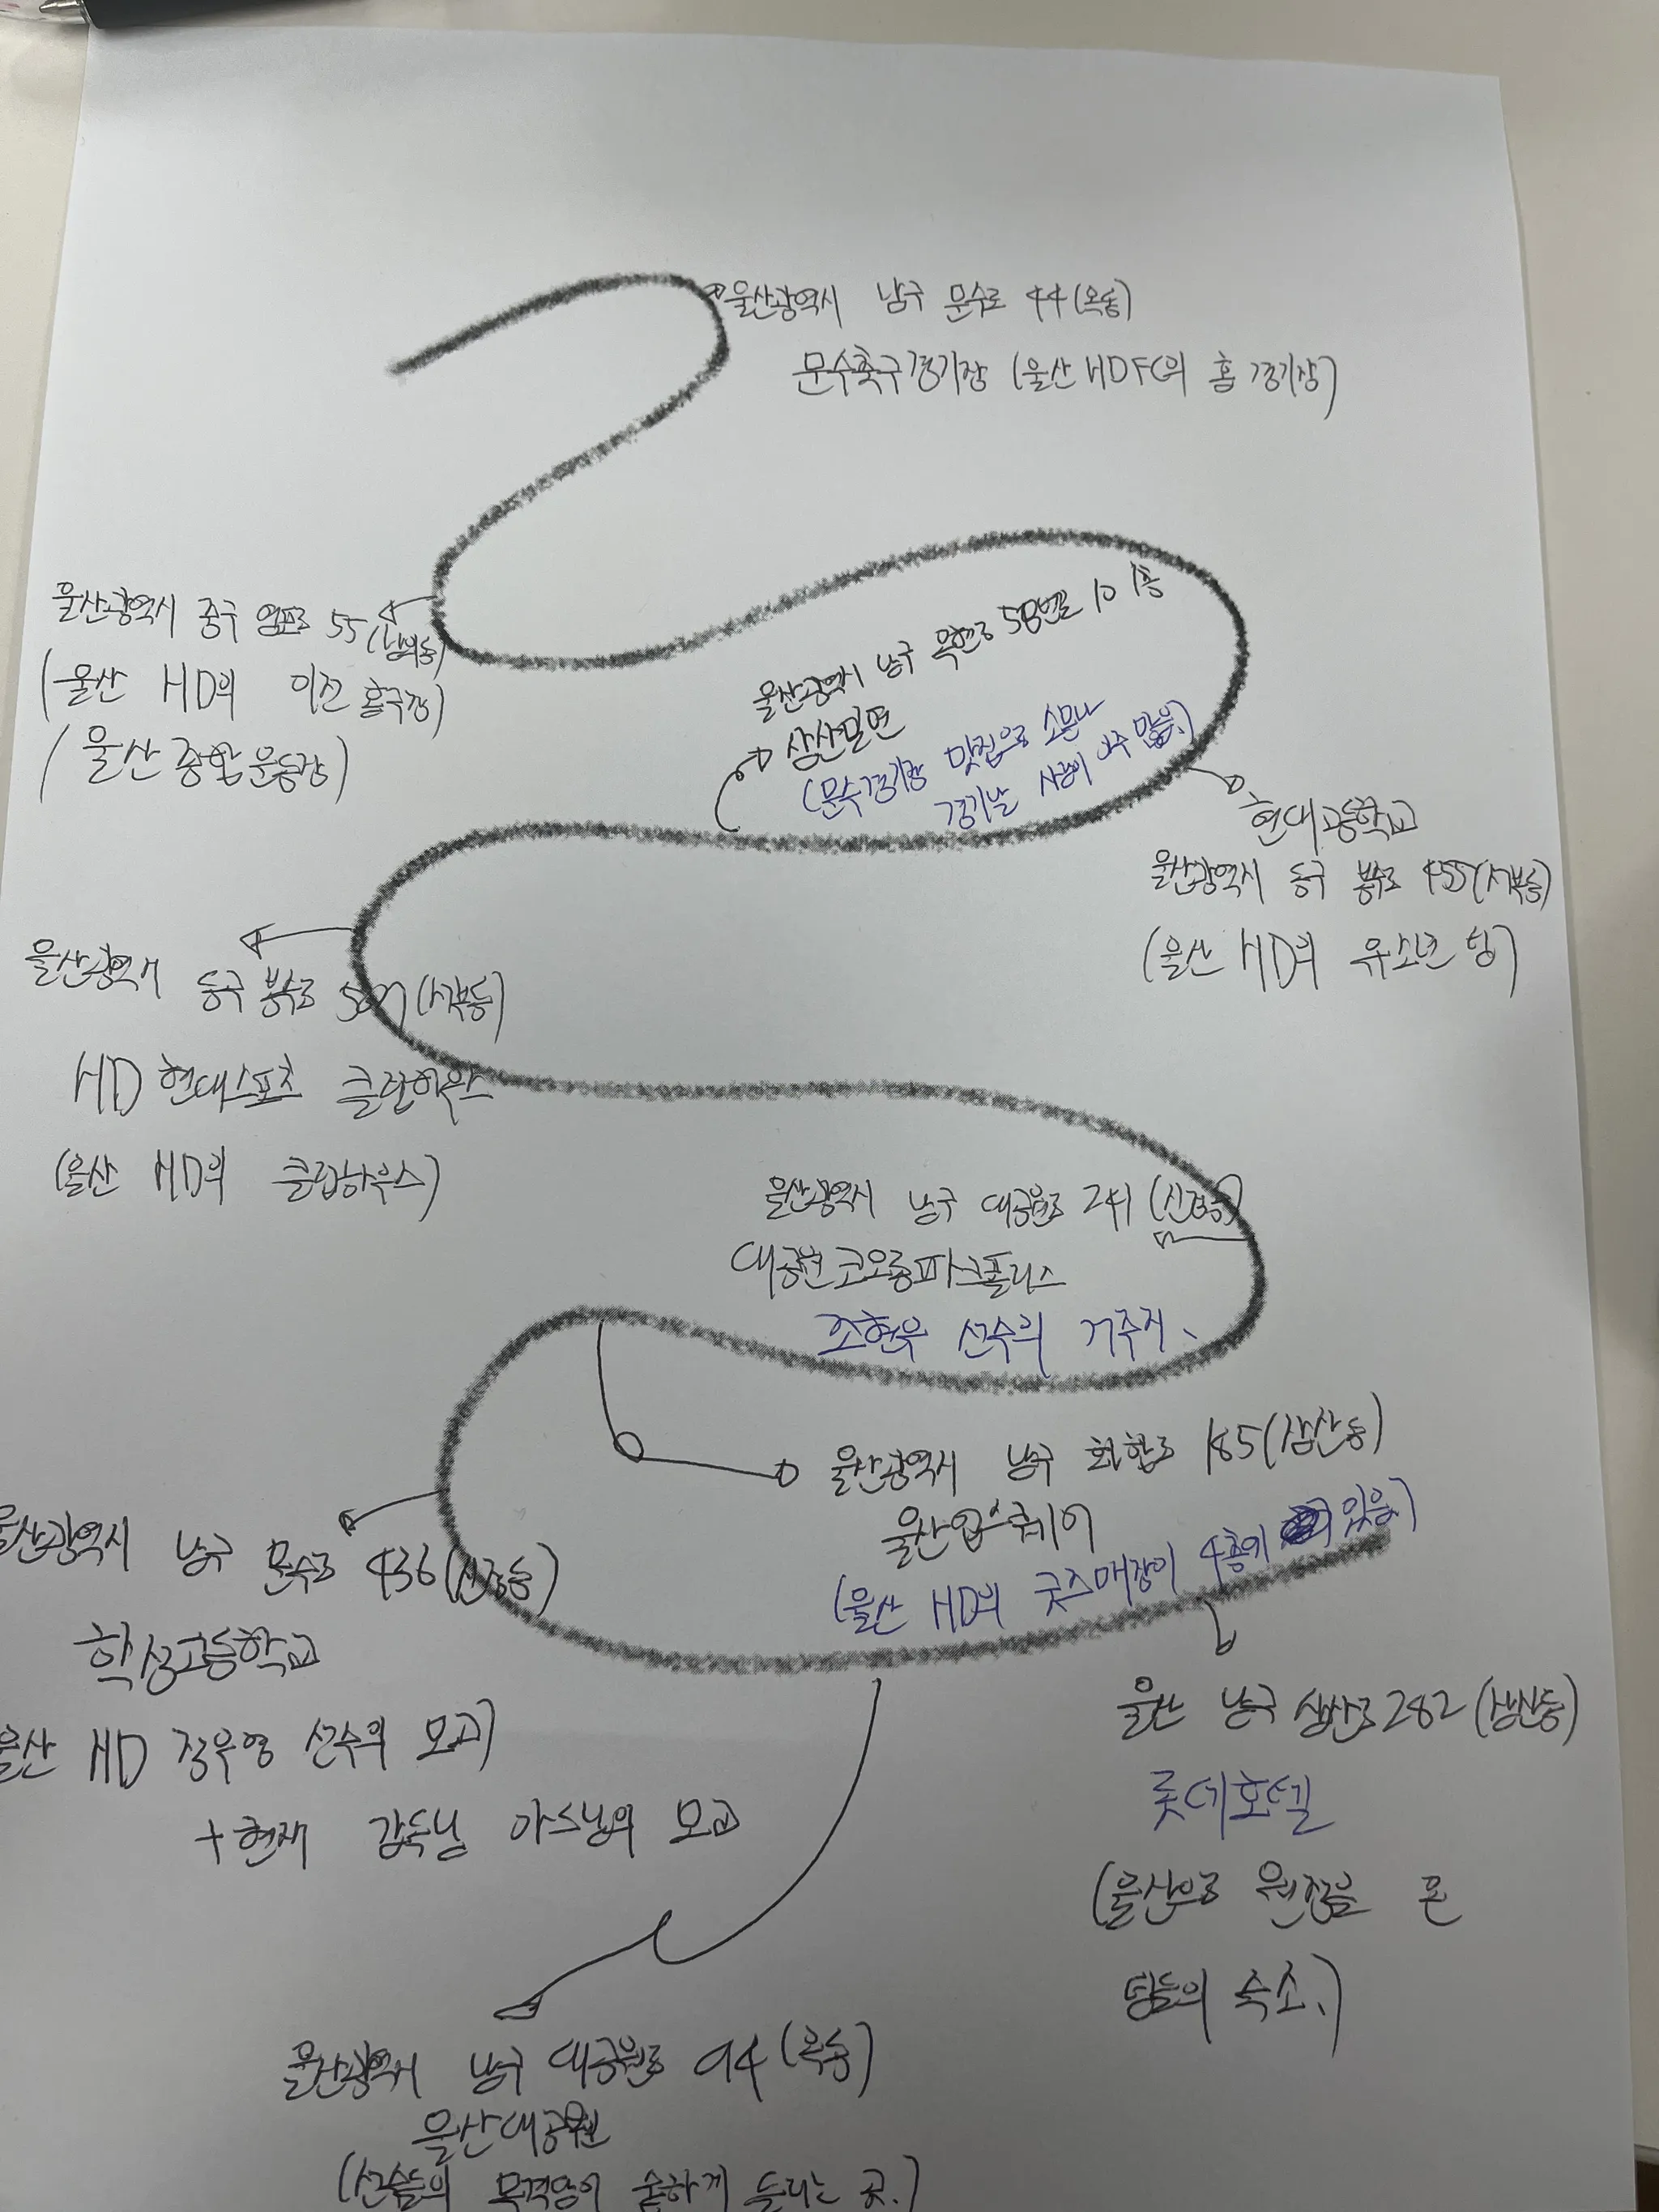 울산광역시 남구 문수로 44(옥동)
문수축구경기장 (울산 HDFC의 홈 경기장)
울산광역시 중구 염포로 55(남외동)
(울산 HD의 이전 홈구장)
(울산종합운동장)
울산광역시 남구 옥현로 58번길 10 1층
삼산밀면
(문수경기장 맛집으로 소문나
경기날 사람이 아주 많음.)
현대고등학교
울산광역시 동구 봉수로 455(서부동)
(울산 HD의 유소년 팀)
울산광역시 동구 봉수로 507(서부동)
HD 현대스포츠 클럽하우스
(울산 HD의 클럽하우스)
울산광역시 남구 대공원로 241 (신정동)
대공원코오롱파크폴리스
조현우 선수의 거주지.
울산광역시 남구 화합로 185(삼산동)
울산업스퀘어
(울산 HD의 굿즈매장이 4층에 있음.)
울산광역시 남구 문수로 436(신정동)
학성고등학교
울산 HD 정우영 선수의 모교)
+현재 감독님 아드님의 모교
울산 남구 삼산로 282 (삼산동)
롯데호텔
(울산으로 원정을 온
팀들의 숙소.)
울산광역시 남구 대공원로 94 (옥동)
울산대공원
(선수들의 목격담이 숱하게 들리는 곳.)